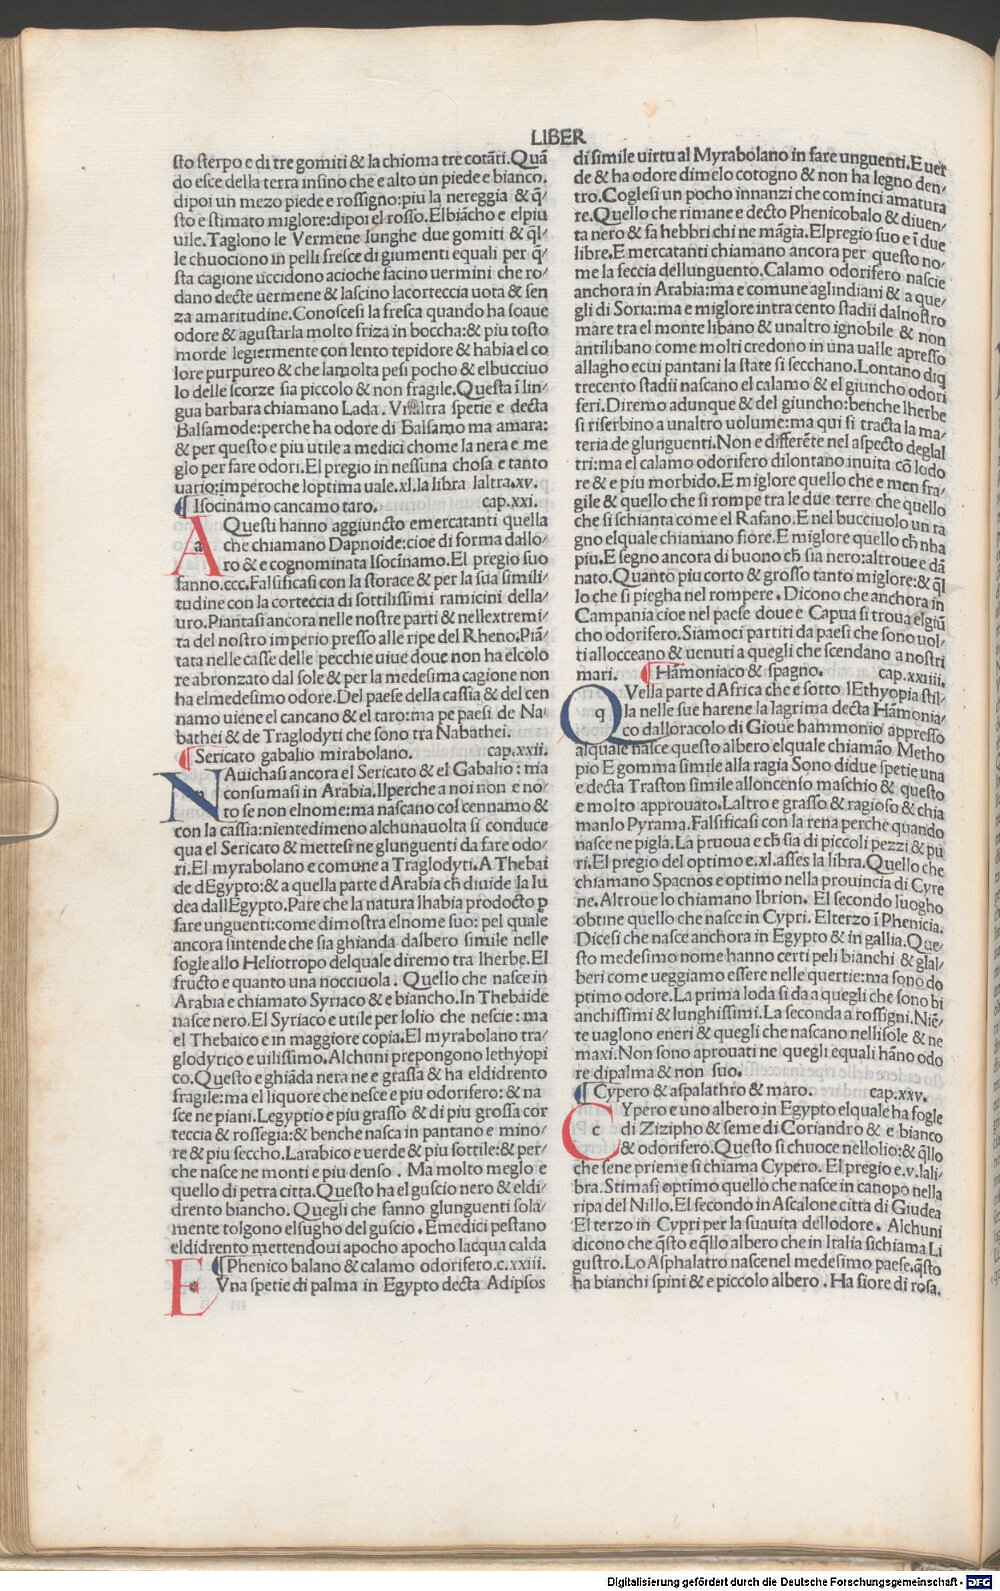 LIBER
sto sterpo e di tre gomiti & la chioma tre cotāti. Quā
do esce della terra insino che e alto un piede e bianco.
dipoi un mezo piede e rossigno: piu la nereggia & q̄/
sto e stimato miglore: dipoi el rosso. Elbiācho e elpiu
uile. Taglono le Vermene lunghe due gomiti & q̄l/
le chuociono in pelli fresce di giumenti equali per q̄/
sta cagione uccidono acioche facino uermini che ro/
dano decte uermene & lascino lacorteccia uota & sen
za amaritudine. Conoscesi la fresca quando ha soaue
odore & agustarla molto friza in boccha: & piu tosto
morde legiermente con lento tepidore & habia el co
lore purpureo & che lamolta pesi pocho & elbucciuo
lo delle scorze sia piccolo & non fragile. Questa ī lin
gua barbara chiamano Lada. Vnaltra spetie e decta
Balsamode: perche ha odore di Balsamo ma amara:
& per questo e piu utile a medici chome la nera e me
glo per fare odori. El pregio in nessuna chosa e tanto
uario: imperoche loptima uale. xl. la libra laltra. xv.
¶ Isocinamo cancamo taro. cap. xxi.
A Questi hanno aggiuncto emercatanti quella
che chiamano Dapnoide: cioe di forma dallo/
ro & e cognominata Isocīnamo. El pregio suo
fanno. ccc. Falsificasi con la storace & per la sua simili/
tudine con la corteccia di sottilissimi ramicini della/
uro. Piantasi ancora nelle nostre parti & nellextremi/
ta del nostro imperio presso alle ripe del Rheno: Piā/
tata nelle casse delle pecchie uiue doue non ha elcolo
re abronzato dal sole & per la medesima cagione non
ha elmedesimo odore. Del paese della cassia & del cen
namo uiene el cancano & el taro: ma pe paesi de Na/
bathei & de Traglodyti che sono tra Nabathei.
¶ Sericato gabalio mirabolano. cap. xxii.
N Auichasi ancora el Sericato & el Gabalio: ma
consumasi in Arabia. Ilperche a noi non e no/
to se non elnome: ma nascano col cennamo &
con la cassia: nientedimeno alchunauolta si conduce
qua el Sericato & mettesi ne glunguenti da fare odo/
ri. El myrabolano e comune a Traglodyti. A Thebai
de dEgypto: & a quella parte dArabia cħ diuide la Iu
dea dallEgypto. Pare che la natura lhabia prodocto ꝑ
fare unguenti: come dimostra elnome suo: pel quale
ancora sintende che sia ghianda dalbero simile nelle
fogle allo Heliotropo delquale diremo tra lherbe. El
fructo e quanto una nocciuola. Quello che nasce in
Arabia e chiamato Syriaco & e biancho. In Thebaide
nasce nero. El Syriaco e utile per lolio che nescie: ma
el Thebaico e in maggiore copia. El myrabolano tra/
glodytico e uilissimo. Alchuni prepongono lethyopi
co. Questo e ghiāda nera ne e grassa & ha eldidrento
fragile: ma el liquore che nesce e piu odorifero: & na
sce ne piani. Legyptio e piu grasso & di piu grossa cor
teccia & rossegia: & benche nasca in pantano e mino/
re & piu seccho. Larabico e uerde & piu sottile: & per/
che nasce ne monti e piu denso. Ma molto meglo e
quello di petra citta. Questo ha el guscio nero & eldi/
drento biancho. Quegli che fanno glunguenti sola/
mente tolgono elsugho del guscio. Emedici pestano
eldidrento mettendoui apocho apocho lacqua calda
¶ Phenico balano & calamo odorifero. c. xxiii.
E Vna spetie di palma in Egypto decta Adipsos
di simile uirtu al Myrabolano in fare unguenti. E uer
de & ha odore dimelo cotogno & non ha legno den/
tro. Coglesi un pocho innanzi che cominci amatura
re. Quello che rimane e decto Phenicobalo & diuen/
ta nero & fa hebbri chi ne māgia. El pregio suo e ī due
libre. E mercatanti chiamano ancora per questo no/
me la feccia dellunguento. Calamo odorifero nascie
anchora in Arabia: ma e comune aglindiani & a que/
gli di Soria: ma e miglore intra cento stadii dalnostro
mare tra el monte libano & unaltro ignobile & non
antilibano come molti credono in una ualle apresso
allagho ecui pantani la state si secchano. Lontano diq̄
trecento stadii nascano el calamo & el giuncho odori
feri. Diremo adunque & del giuncho: benche lherbe
si riserbino a unaltro uolume: ma qui si tracta la ma/
teria de glunguenti. Non e differēte nel aspecto deglal
tri: ma el calamo odorifero dilontano inuita cō lodo
re & e piu morbido. E miglore quello che e men fra/
gile & quello che si rompe tra le due terre che quello
che si schianta come el Rafano. E nel bucciuolo un ra
gno elquale chiamano fiore. E miglore quello cħ nha
piu. E segno ancora di buono cħ sia nero: altroue e dā
nato. Quanto piu corto & grosso tanto miglore: & q̄l
lo che si piegha nel rompere. Dicono che anchora in
Campania cioe nel paese doue e Capua si troua elgiū
cho odorifero. Siamoci partiti da paesi che sono uol/
ti allocceano & uenuti a quegli che scendano a nostri
mari. ¶ Hāmoniaco & spagno. cap. xxiiii.
Q Vella parte dAfrica che e sotto lEthyopia stil/
la nelle sue harene la lagrima decta Hāmonia/
co dalloracolo di Gioue hammonio appresso
alquale nasce questo albero elquale chiamāo Metho
pio E gomma simile alla ragia Sono didue spetie una
e decta Traston simile alloncenso maschio & questo
e molto approuato. Laltro e grasso & ragioso & chia
manlo Pyrama. Falsificasi con la rena perche quando
nasce ne pigla. La pruoua e cħ sia di piccoli pezzi & pu
ri. El pregio del optimo e. xl. asses la libra. Quello che
chiamano Spacnos e optimo nella prouincia di Cyre
ne. Altroue lo chiamano Ibrion. El secondo luogho
obtine quello che nasce in Cypri. Elterzo ī Phenicia.
Dicesi che nasce anchora in Egypto & in gallia. Que/
sto medesimo nome hanno certi peli bianchi & glal/
beri come ueggiamo essere nelle quertie: ma sono do
ptimo odore. La prima loda si da a quegli che sono bi
anchissimi & lunghissimi. La seconda a rossigni. Niē/
te uaglono eneri & quegli che nascano nellisole & ne
maxi. Non sono aprouati ne quegli equali hāno odo
re dipalma & non suo.
¶ Cypero & aspalathro & maro. cap. xxv.
C Ypero e uno albero in Egypto elquale ha fogle
di Zizipho & seme di Coriandro & e bianco
& odorifero. Questo si chuoce nellolio: & q̄llo
che sene prieme si chiama Cypero. El pregio e. v. lali/
bra. Stimasi optimo quello che nasce in canopo nella
ripa del Nillo. El secondo in Ascalone citta di Giudea
El terzo in Cypri per la suauita dellodore. Alchuni
dicono che q̄sto e q̄llo albero che in Italia sichiama Li
gustro. Lo Asphalatro nasce nel medesimo paese. q̄sto
ha bianchi spini & e piccolo albero. Ha fiore di rosa.
Digitalisierung gefördert durch die Deutsche Forschungsgemeinschaft - DFG